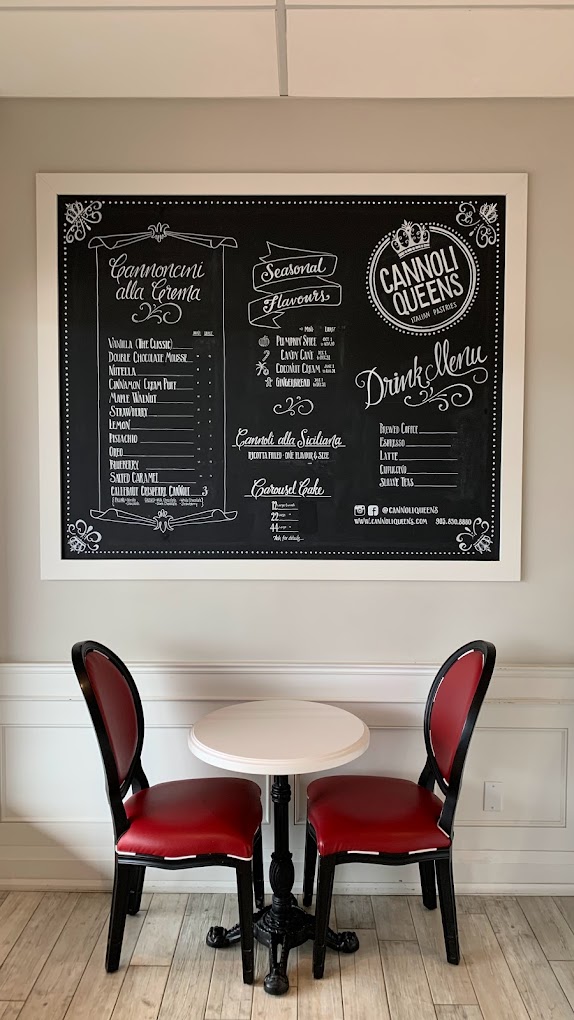 Cannoncini
alla Crema
Vanilla (The Classic)
Double Chocolate Mousse
Nutella
Cinnamon Cream Puff
Maple Walnut
Strawberry
Lemon
Pistachio
Oreo
Blueberry
Salted Caramel
Callebaut Crisperel Cannoli 3
Seasonal
Flavours
Pumpkin Spice
Candy Cane
Coconut Cream
Gingerbread
Cannoli alla Siciliana
Ricotta Filled · One Flavour & Size
Carousel Cake
12
22
44
Ask for details...
CANNOLI
QUEENS
ITALIAN PASTRIES
Drink Menu
Brewed Coffee
Espresso
Latte
Cappuccino
Sloane Teas
@CANNOLIQUEENS
WWW.CANNOLIQUEENS.COM 905.850.8880